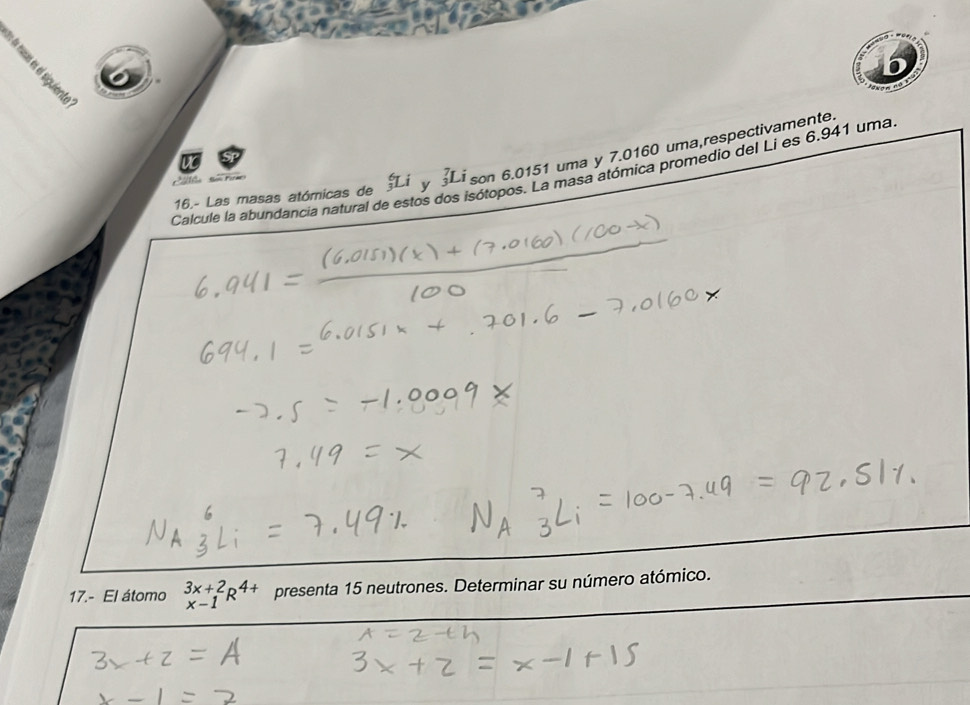 UC SP
16.- Las masas atómicas de ⁶₃Li y ⁷₃Li son 6.0151 uma y 7.0160 uma,respectivamente.
Calcule la abundancia natural de estos dos isótopos. La masa atómica promedio del Li es 6.941 uma.
6.941 = (6.0151)(x) + (7.0160)(100-x) / 100
694.1 = 6.0151x + 701.6 - 7.0160x
-7.5 = -1.0009x
7.49 = x
NA ⁶₃Li = 7.49% NA ⁷₃Li = 100-7.49 = 92.51%.
17.- El átomo ³ˣ⁺²ₓ₋₁R⁴⁺ presenta 15 neutrones. Determinar su número atómico.
A = z + n
3x+2 = A 3x+2 = x-1+15
x-1 = z